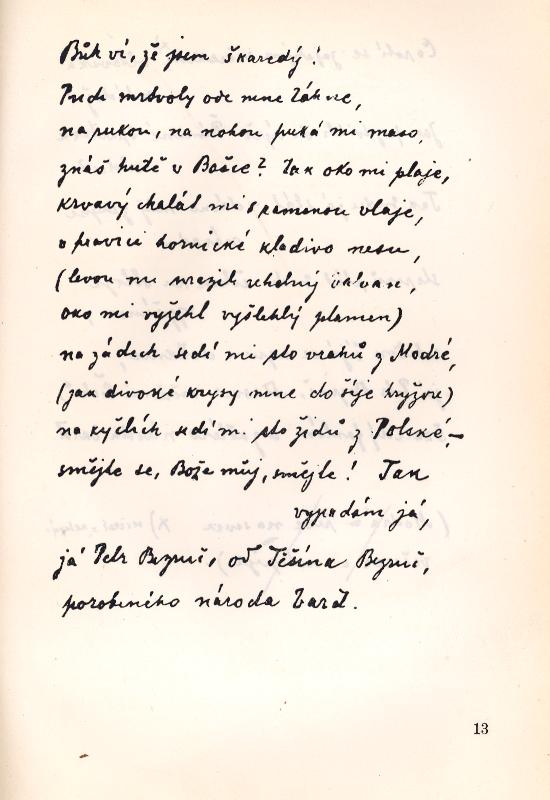 Bůh ví, žě jsem škaredý!
Puch mrtvoly ode mne táhne,
na rukou, na nohou puká mi maso,
znáš hutě v Bašce? Tak oko mi plaje,
krvavý chalát mi s ramenou vlaje,
v pravici hornické kladivo nesu,
(levou mi urazil uhelný balvan,
oko mi vyžehl vyšlehlý plamen)
na zádech sedí mi sto vrahů z Modré,
(jak divoké krysy mne do šíje hryžou)
na kyčlích sedí mi sto židů z Polské, –
smějte se, Bože můj, smějte! Tak
vypadám já,
já Petr Bezruč, od Těšína Bezruč,
porobeného národa bard.
13